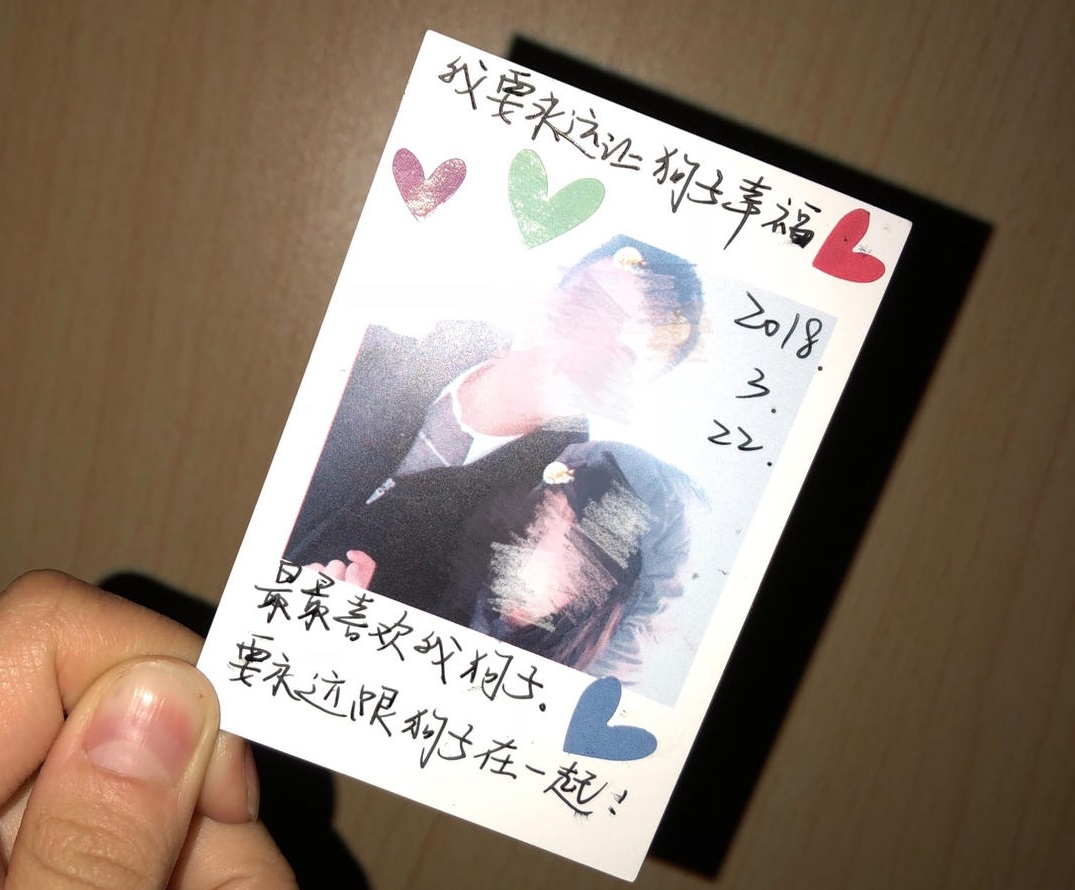 我要永远让狗子幸福
2018.
3.
22.
最最喜欢我狗子.
要永远跟狗子在一起!